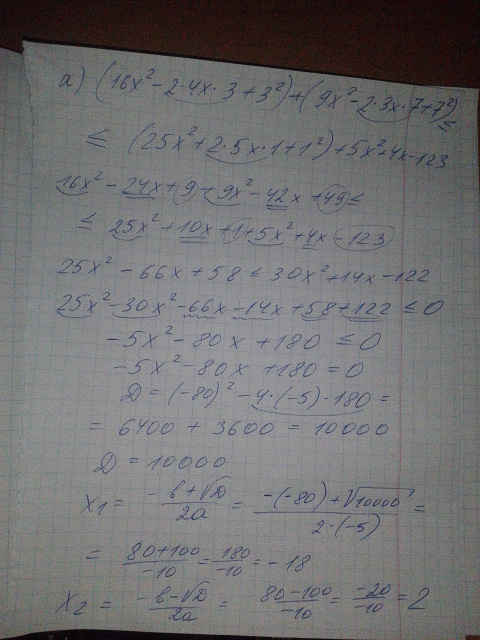 а) (16x² - 2·4x·3 + 3²) + (9x² - 2·3x·7 + 7²) ≤
≤ (25x² + 2·5x·1 + 1²) + 5x² + 4x - 123
16x² - 24x + 9 + 9x² - 42x + 49 ≤
≤ 25x² + 10x + 1 + 5x² + 4x - 123
25x² - 66x + 58 ≤ 30x² + 14x - 122
25x² - 30x² - 66x - 14x + 58 + 122 ≤ 0
-5x² - 80x + 180 ≤ 0
-5x² - 80x + 180 = 0
D = (-80)² - 4·(-5)·180 =
= 6400 + 3600 = 10000
D = 10000
x₁ = (-b + √D)/2a = (-(-80) + √10000)/(2·(-5)) =
= (80 + 100)/-10 = 180/-10 = -18
x₂ = (-b - √D)/2a = (80 - 100)/-10 = -20/-10 = 2